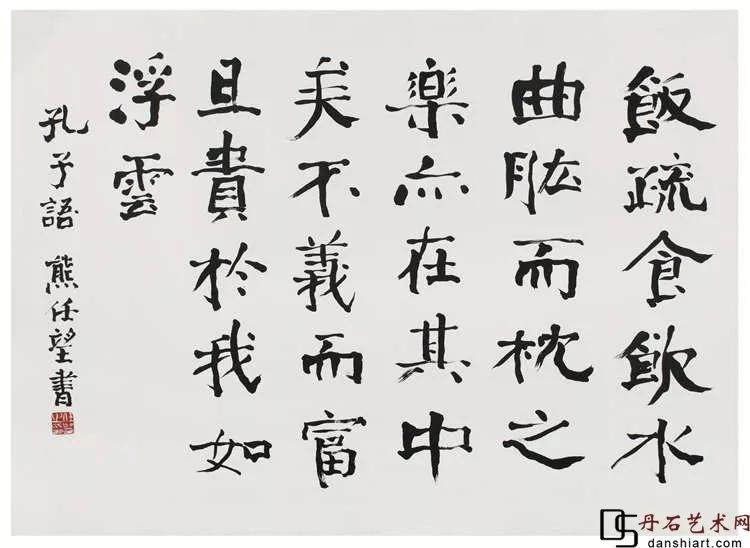 飯疏食飲水
曲肱而枕之
樂亦在其中
矣不義而富
且貴於我如
浮雲
孔子語 熊任望書
DS 丹石艺术网
danshiart.com